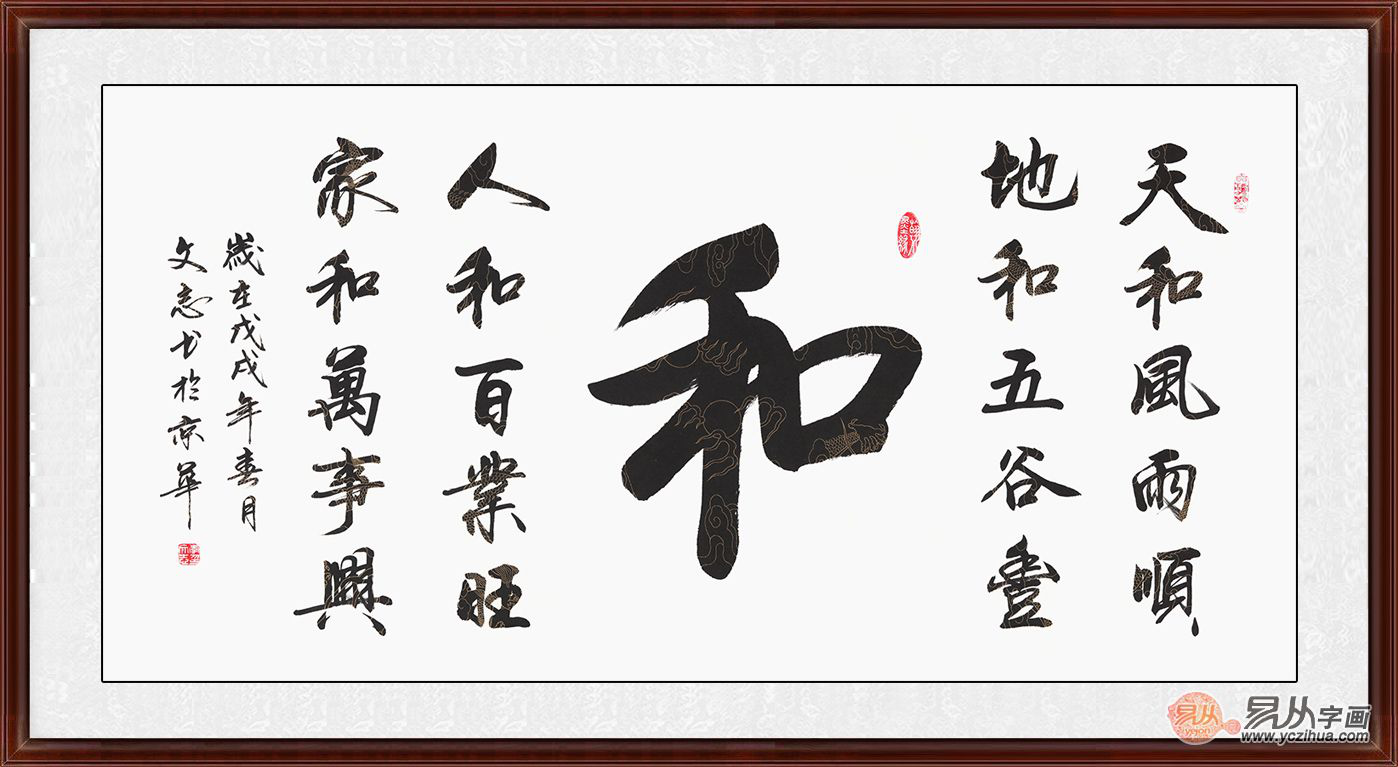 天和風雨順
地和五谷豐
和
人和百業旺
家和萬事興
歲在戊戌年春月
文志书於京華
易从
yejon
易从字画
www.yczihua.com